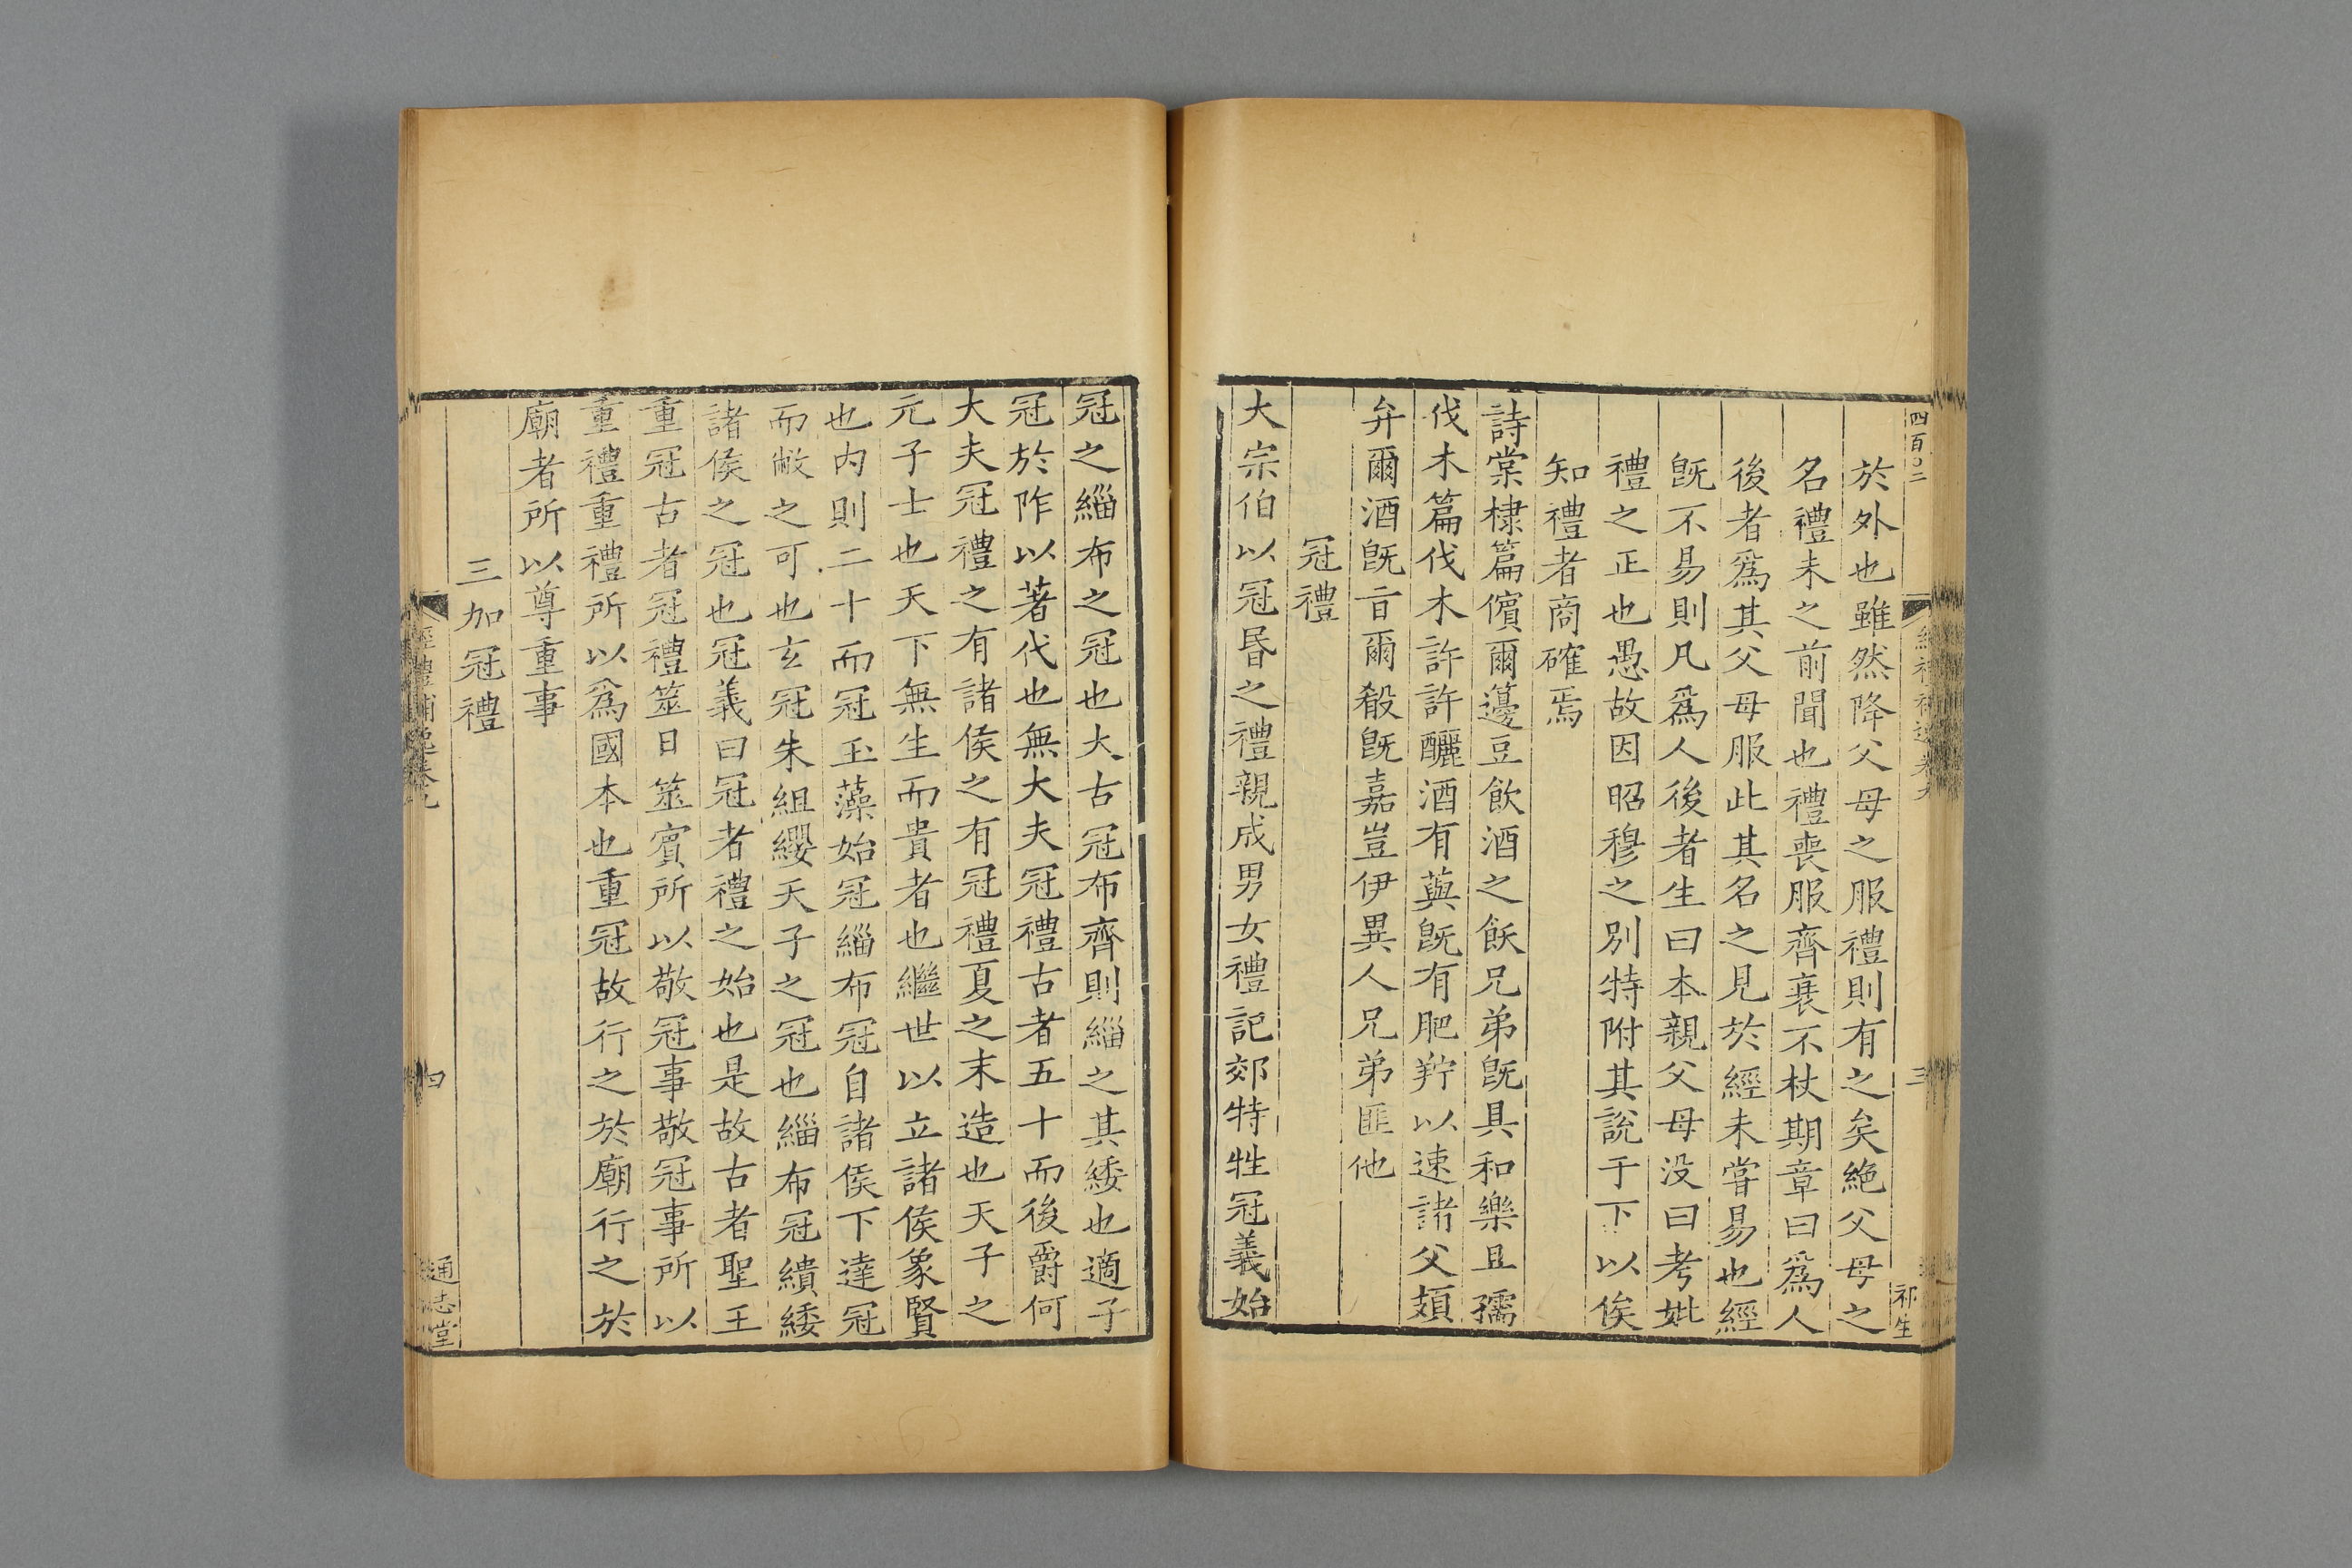 四百〇二
三
祁生
於外也雖然降父母之服禮則有之矣絶父母之
名禮未之前聞也禮喪服齊衰不杖期章曰爲人
後者爲其父母服此其名之見於經未嘗易也經
旣不易則凡爲人後者生曰本親父母没曰考妣
禮之正也愚故因昭穆之別特附其說于下以俟
知禮者商確焉
詩棠棣篇儐爾籩豆飲酒之飫兄弟旣具和樂且孺
伐木篇伐木許許釃酒有藇旣有肥羜以速諸父頍
弁爾酒旣㫖爾殽旣嘉豈伊異人兄弟匪他
冠禮
大宗伯以冠昏之禮親成男女禮記郊特牲冠義始
冠之緇布之冠也大古冠布齊則緇之其緌也適子
冠於阼以著代也無大夫冠禮古者五十而後爵何
大夫冠禮之有諸侯之有冠禮夏之末造也天子之
元子士也天下無生而貴者也繼世以立諸侯象賢
也内則二十而冠玉藻始冠緇布冠自諸侯下達冠
而敝之可也玄冠朱組纓天子之冠也緇布冠繢緌
諸侯之冠也冠義曰冠者禮之始也是故古者聖王
重冠古者冠禮筮日筮賓所以敬冠事敬冠事所以
重禮重禮所以爲國本也重冠故行之於廟行之於
廟者所以尊重事
三加冠禮
經禮補逸卷九
四
通志堂